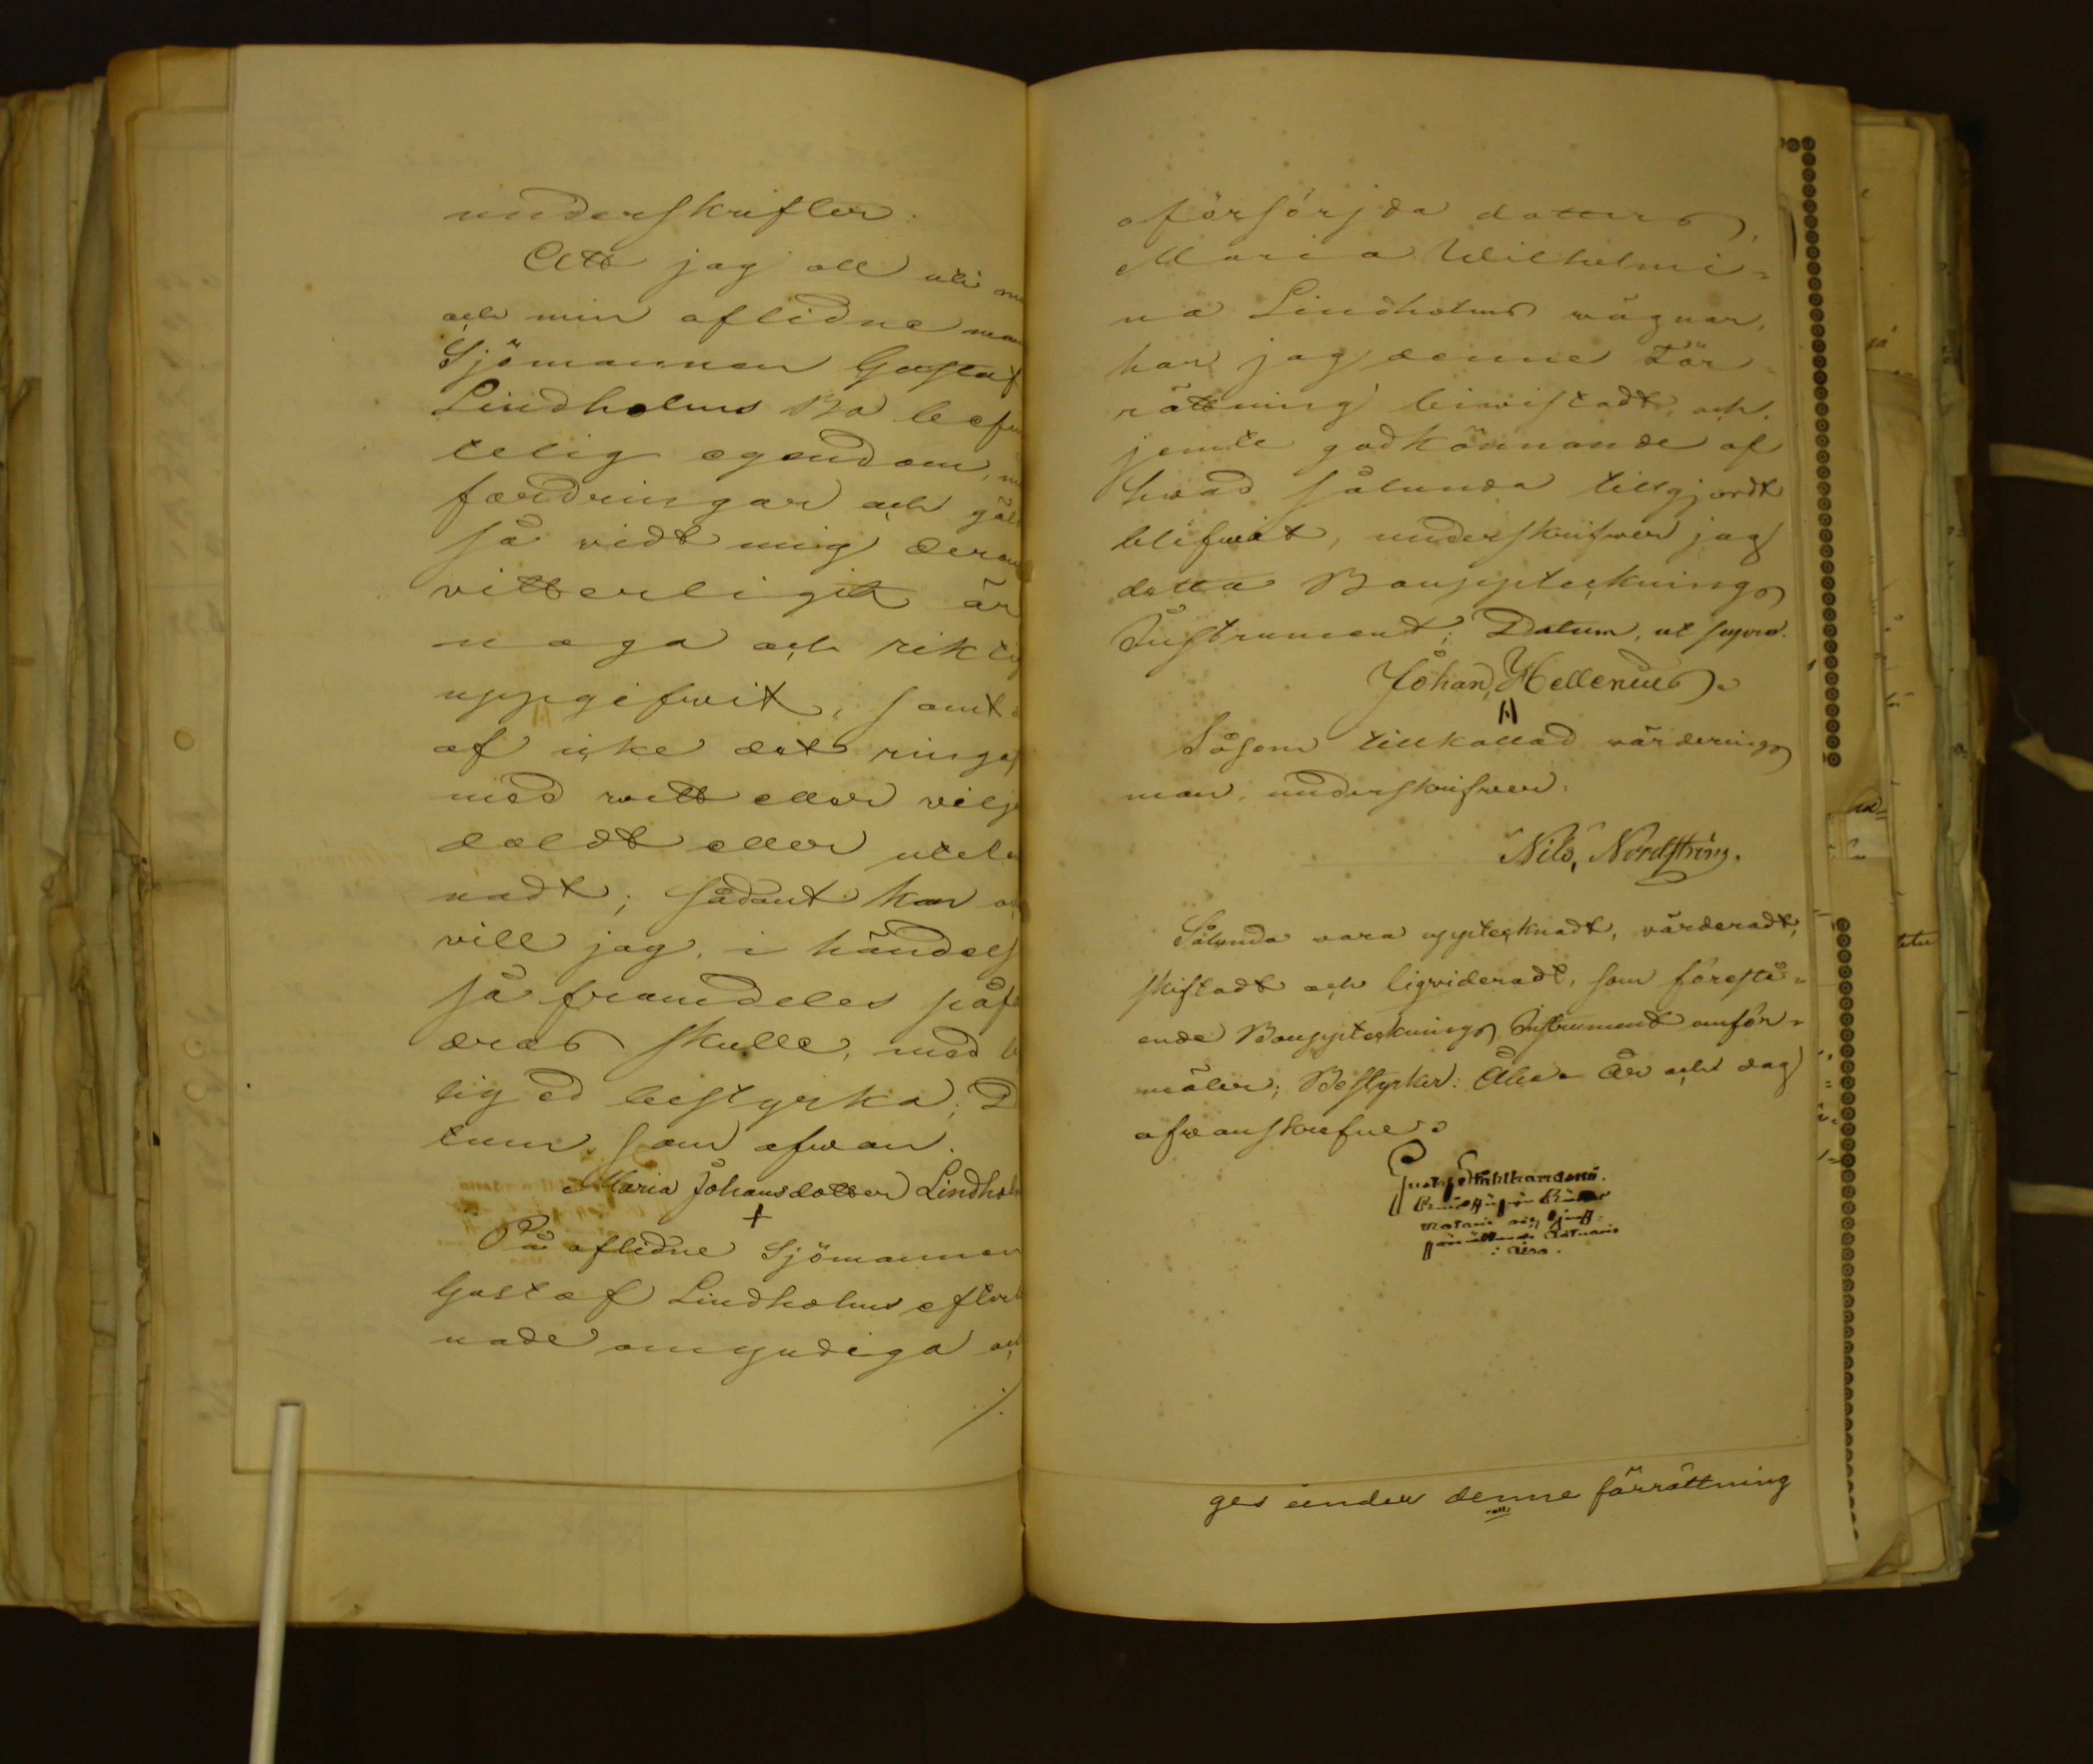 underskrifter.
Att jag all uti m
och min aflidne man
Sjömannen Gustaf
Lindholms Bo befin
telig egendom,
fordringar och gäld
så vidt mig derom
vitterligit är
noga och riktig
uppgifvit, samt
af icke det ringas
med vett eller vilje
döldt eller utele
nadt; sådant kan oc
vill jag, i händels
så framdeles påfo
dras skulle, med
lig ed bestyrka; D
tum som ofvan.
Maria Johansdotter Lindhol
+
På aflidne Sjömannen
Gustaf Lindholms efterl
nade omyndiga och
./.
oförsörjda dotters,
Maria Wilhelmi=
na Lindholms vägnar,
har jag denne För=
rättning bivistadt, och
jemte godkännande af
hvad sålunda tillgjordt
blifvit, underskrifver jag
detta Boupptecknings
Instrument; Datum, ut supra.
Johan, Hellenius.
Såsom tillkallad värderings
man, underskrifver.
Nils, Nordström.
Sålunda vara upptecknadt, värderadt,
skiftadt och liqvideradt, som förestå=
ende Bouppteckning, Instrument omför=
mäler; Bestyrker: Åbo År och dag
ofvanskrefne.
Gust.
notarie
i Åbo.
ges under denne förrättning